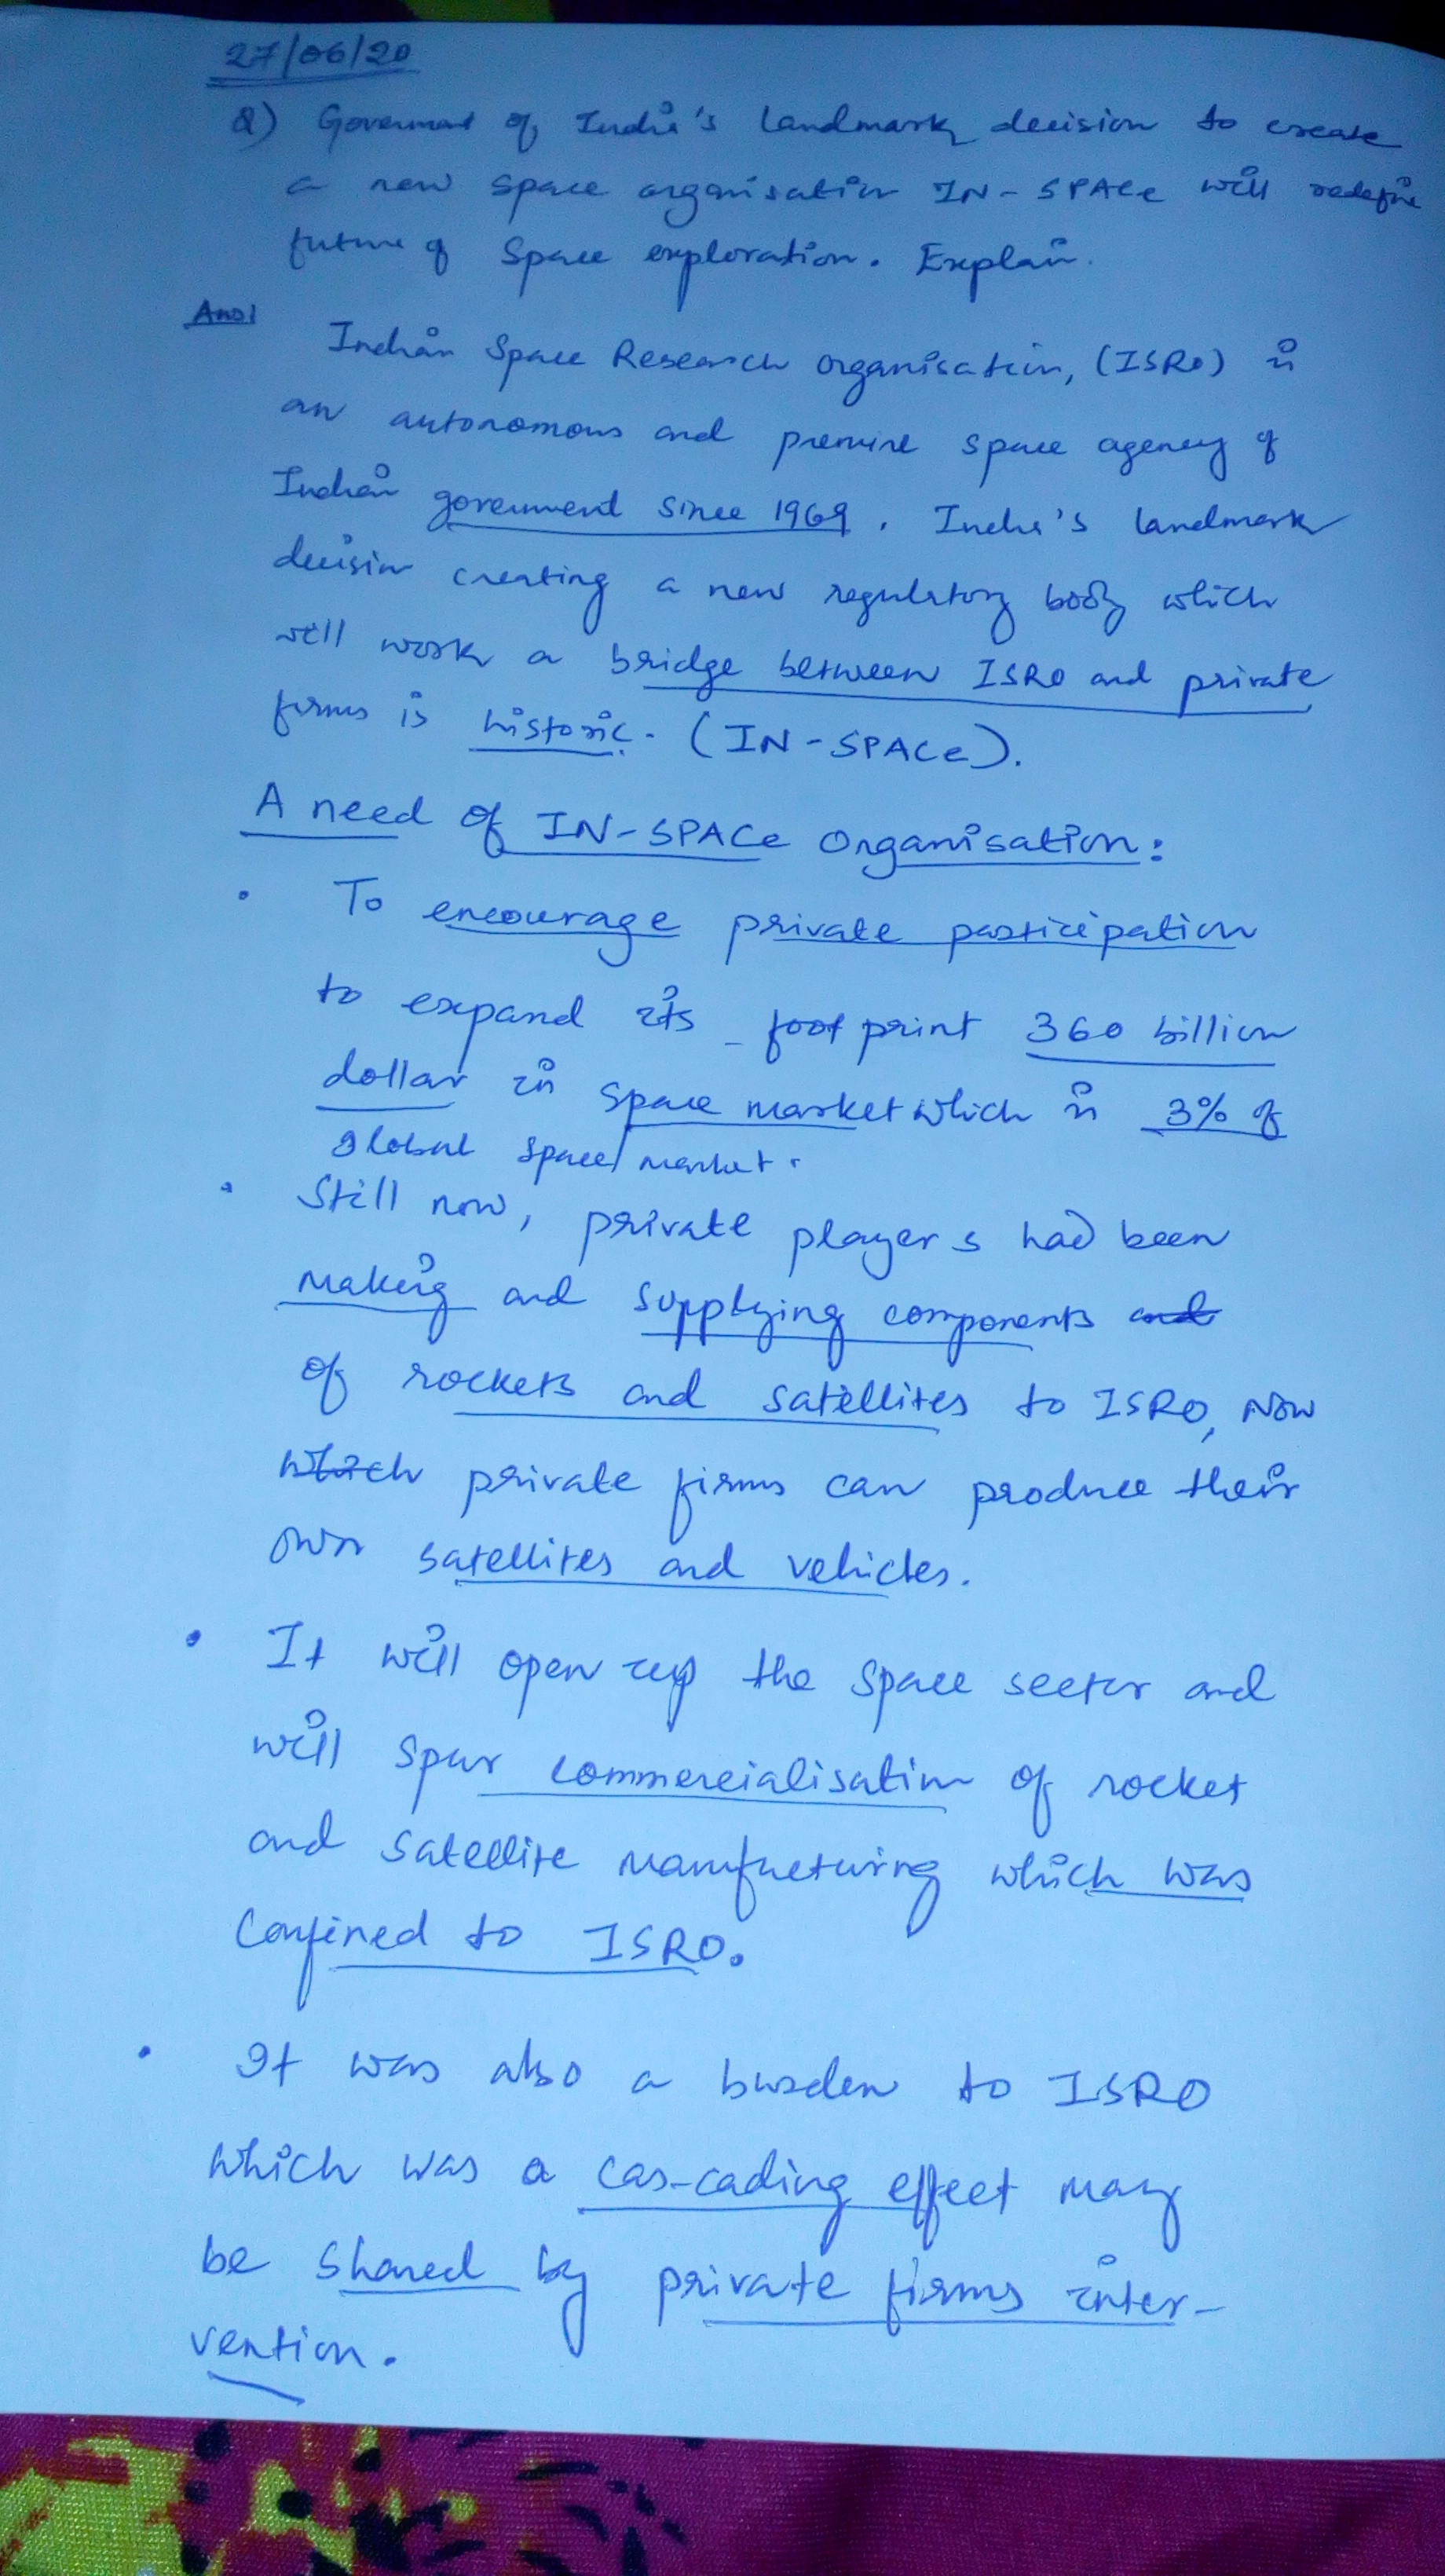 27/06/20
Q) Government of India's landmark decision to create
a new space organisation IN-SPACe will redefine
future of space exploration. Explain.
Ans:
Indian Space Research organisation, (ISRO) is
an autonomous and premire space agency of
Indian government since 1969. India's landmark
decision creating a new regulatory body which
will work a bridge between ISRO and private
firms is historic. (IN-SPACe).
A need of IN-SPACe Organisation:
• To encourage private participation
to expand its footprint 360 billion
dollar in space market which is 3% of
global space market.
• Still now, private players had been
making and supplying components and
of rockets and satellites to ISRO, Now
which private firms can produce their
own satellites and vehicles.
• It will open up the space sector and
will spur commercialisation of rocket
and satellite manufacturing which was
confined to ISRO.
• It was also a burden to ISRO
which was a cas-cading effect may
be shared by private firms inter-
vention.